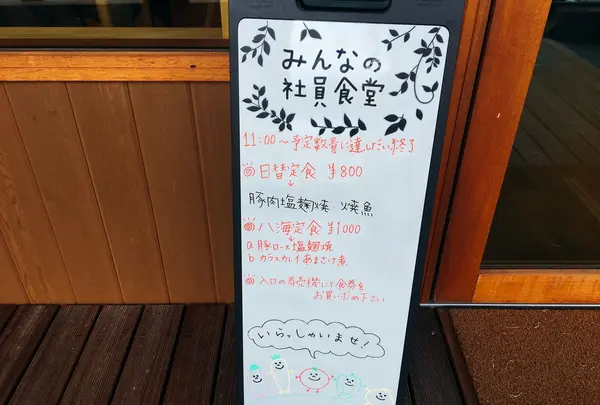 みんなの
社員食堂
11:00〜予定数量に達しだい終了
日替定食 ¥800
豚肉塩麹焼 焼魚
八海定食 ¥1000
a 豚ロース塩麹焼
b カラスカレイあまさけ煮
入口の券売機にて食券を
お買い求め下さい
いらっしゃいませ!